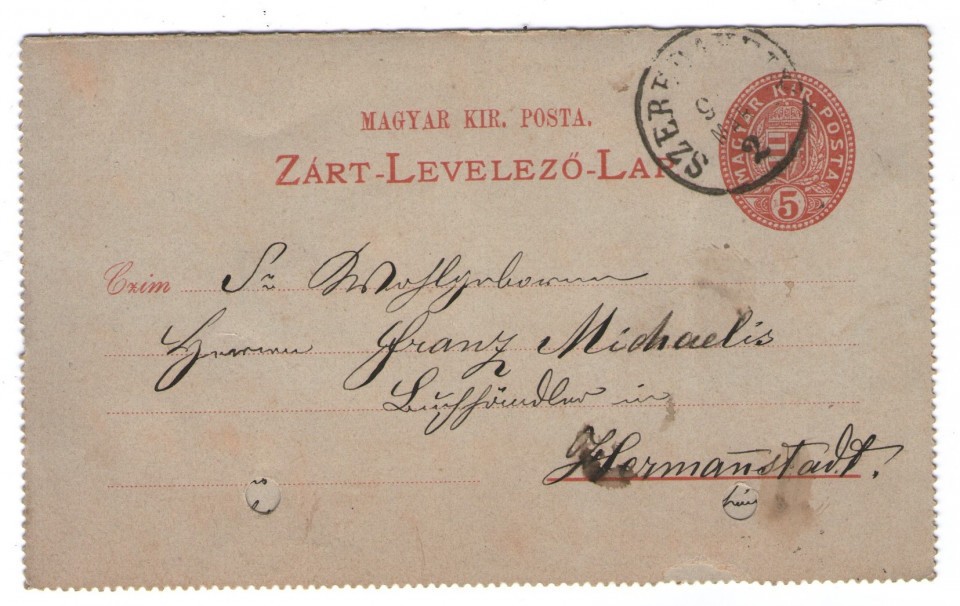 MAGYAR KIR. POSTA.
ZÁRT-LEVELEZŐ-LAP
MAGYAR KIR. POSTA
5
Czim Sr Wohlgeboren
Herren Franz Michaelis
Buchhändler in
Hermannstadt.